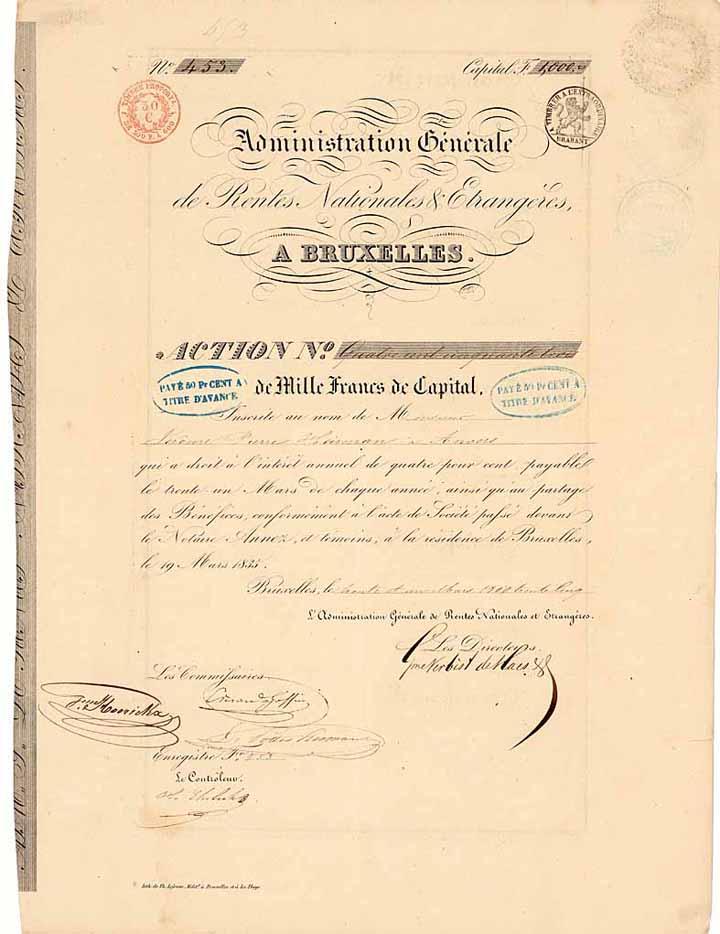 653
Nº 453.
Capital F. 1,000.=
TIMBRE PROPORT. 50 C. DE 500 F. A 600
TIMBRE A L'EXTRAORDINAIRE BRABANT
Administration Générale
de Rentes Nationales & Etrangères,
A BRUXELLES.
ACTION Nº Quatre cent cinquante trois
de Mille Francs de Capital,
PAYÉ 50 Pr CENT A
TITRE D'AVANCE
PAYÉ 50 Pr CENT A
TITRE D'AVANCE
Inscrite au nom de Monsieur
Pierre à Anvers
qui a droit à l'intérêt annuel de quatre pour cent payable
le trente un Mars de chaque année, ainsi qu'au partage
des Bénéfices, conformément à l'acte de Société passé devant
le Notaire Annez, et témoins, à la residence de Bruxelles,
le 19 Mars 1835.
Bruxelles, le trente et un Mars 1800 trente cinq
L'Administration Générale de Rentes Nationales et Etrangères.
Les Directeurs.
Les Commissaires
Enregistré Fº
Le Contrôleur.